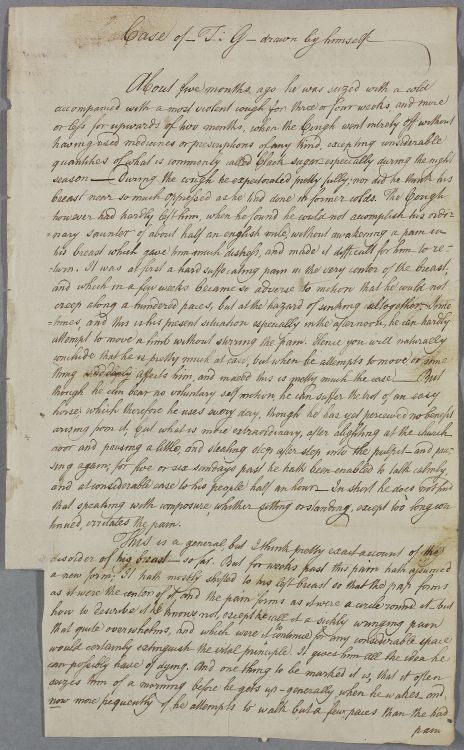 Case of – T: G – drawn by himself
About five months ago he was seized with a cold
accompanied with a most violent cough for three or four weeks and more
or less for upwards of two months, when the Cough went entirely off without
having used medicines or prescriptions of any kind, excepting considerable
quantities of what is commonly called black sugar especially during the night
season — During the cough he expectorated pretty fully; nor did he think his
breast near so much oppressed as he had done in former colds. The Cough
however had hardly left him, when he found he could not accomplish his ordi-
nary saunter of about half an english mile, without awakening a pain in
his breast which gave him much and made it difficult for him to re-
turn. It was at first a hard suffocating pain in the very center of the breast,
and which in a few weeks became so adverse to motion that he could not
creep along a hundered paces, but at the hazard of sinking altogether. Some-
times, and this is his present situation especially in the afternoon, he can hardly
attempt to move a limb without stirring the pain. Hence you will naturally
conclude that he is pretty much at ease, but when he attempts to move or some
thing affects him, and indeed this is pretty much the case — But
though he can bear no voluntary self motion, he can suffer the trot of an easy
horse; which therefore he uses every day, though he has yet perceived no benefit
arising from it, but what is more extraordinary, after alighting at the church
door and pausing a little, and stealing step after step into the pulpit – and pau-
sing again, for five or six sundays past he hath been enabled to talk calmly,
and at considerable ease to his people half an hour — In short he does not find
that speaking with composure whether sitting or standing, except too long con-
tinued, irritates the pain.
This is a general, but I think pretty exact account of the
disorder of his breast – so far. But for weeks past this pain hath assumed
a new form; It hath mostly shifted to his left breast so that the pap forms
as it were the center of it and the pain forms as it were a circle round it – but
how to describe it he knows not, except he call it a sickly winging pain
that quite overwhelms, and which were it to continue for any considerable space
would certainly extinguish the vital principle. It gives him all the idea he
can possibly have of dying. And one thing to be marked it is, that it often
seizes him of a morning before he gets up – generally, when he wakes, and
now more frequently if he attempts to walk but a few paces than the hard
pain